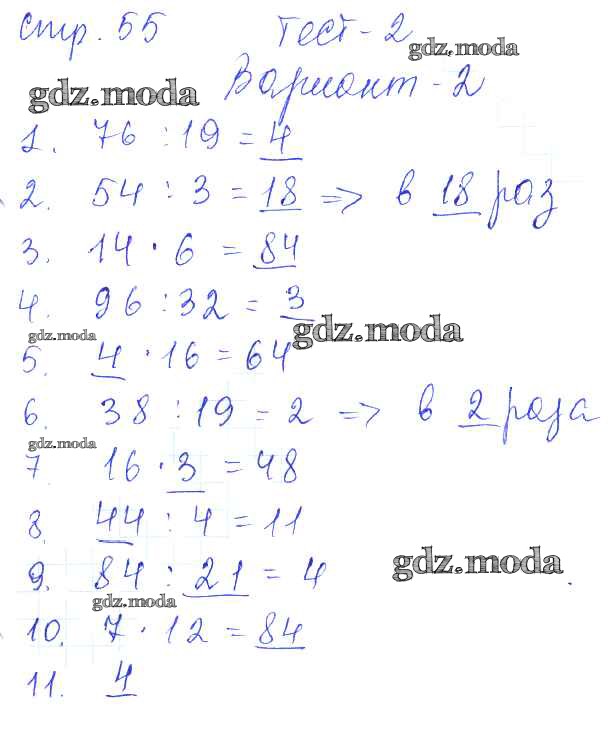 стр. 55 Тест-2
gdz.moda
gdz.moda Вариант-2
1. 76 : 19 = 4
2. 54 : 3 = 18 => в 18 раз
3. 14 · 6 = 84
4. 96 : 32 = 3
gdz.moda gdz.moda
5. 4 · 16 = 64
6. 38 : 19 = 2 => в 2 раза
gdz.moda
7 16 · 3 = 48
8. 44 : 4 = 11
9. 84 : 21 = 4 gdz.moda
gdz.moda
10. 7 · 12 = 84
11. 4